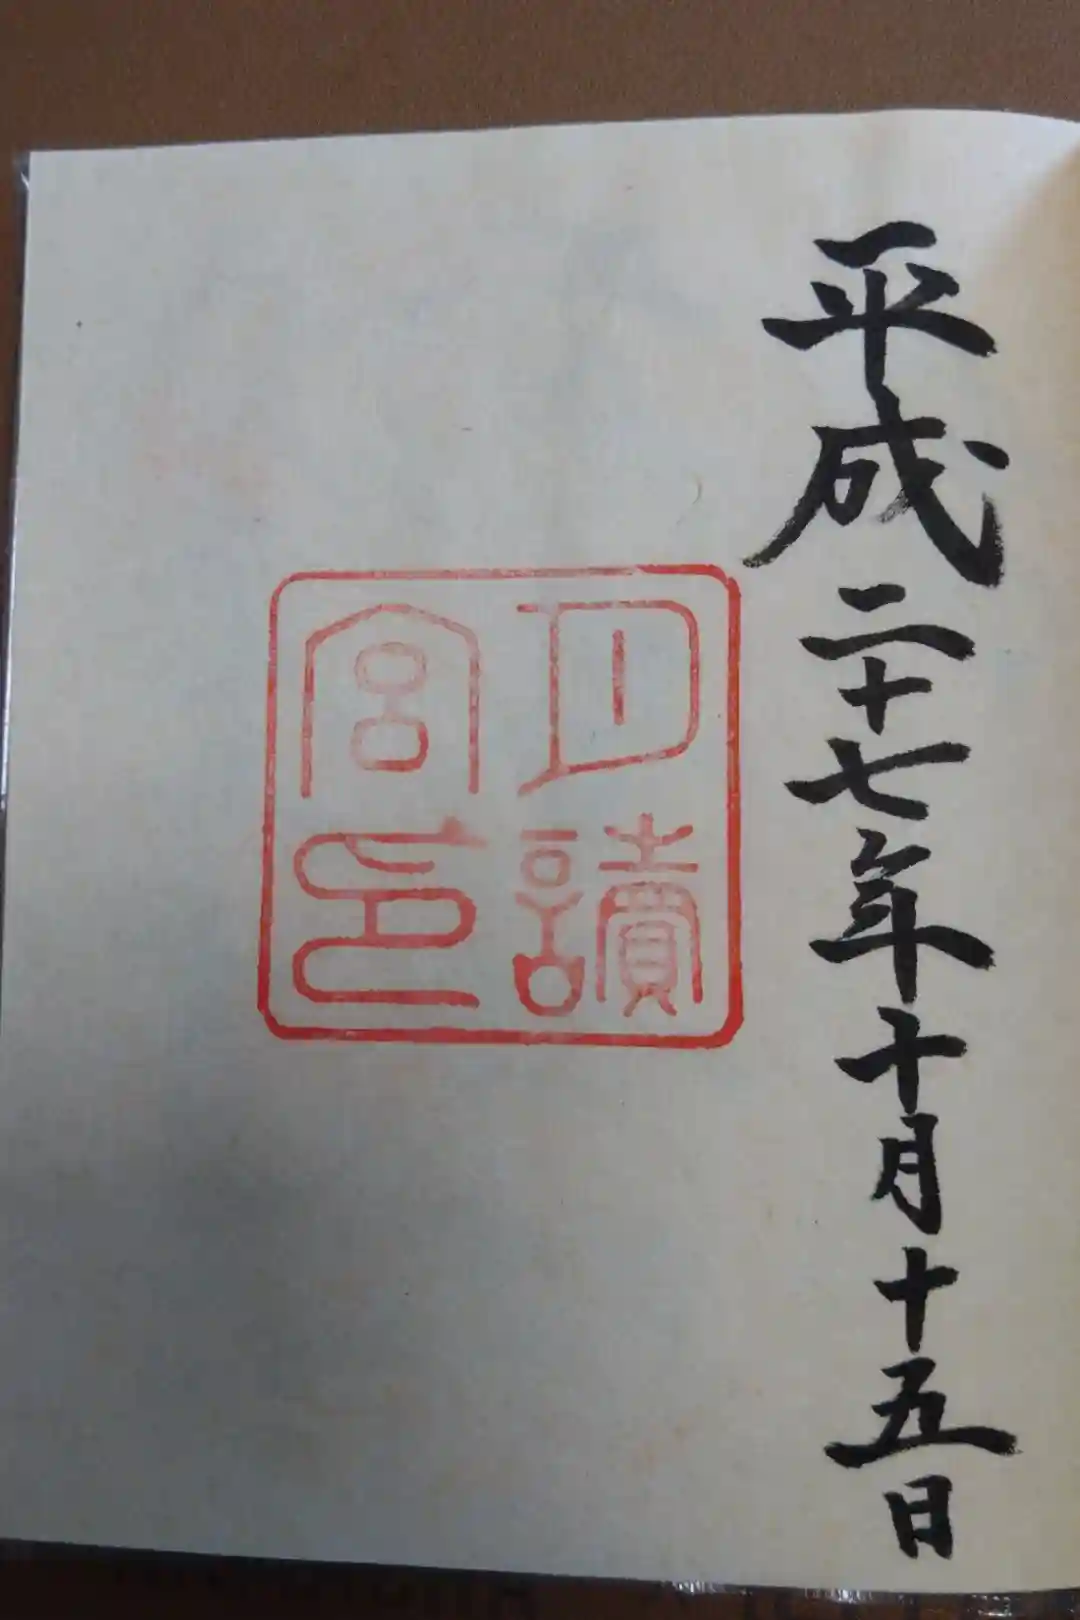 平成二十七年十月十五日
月讀
宮印